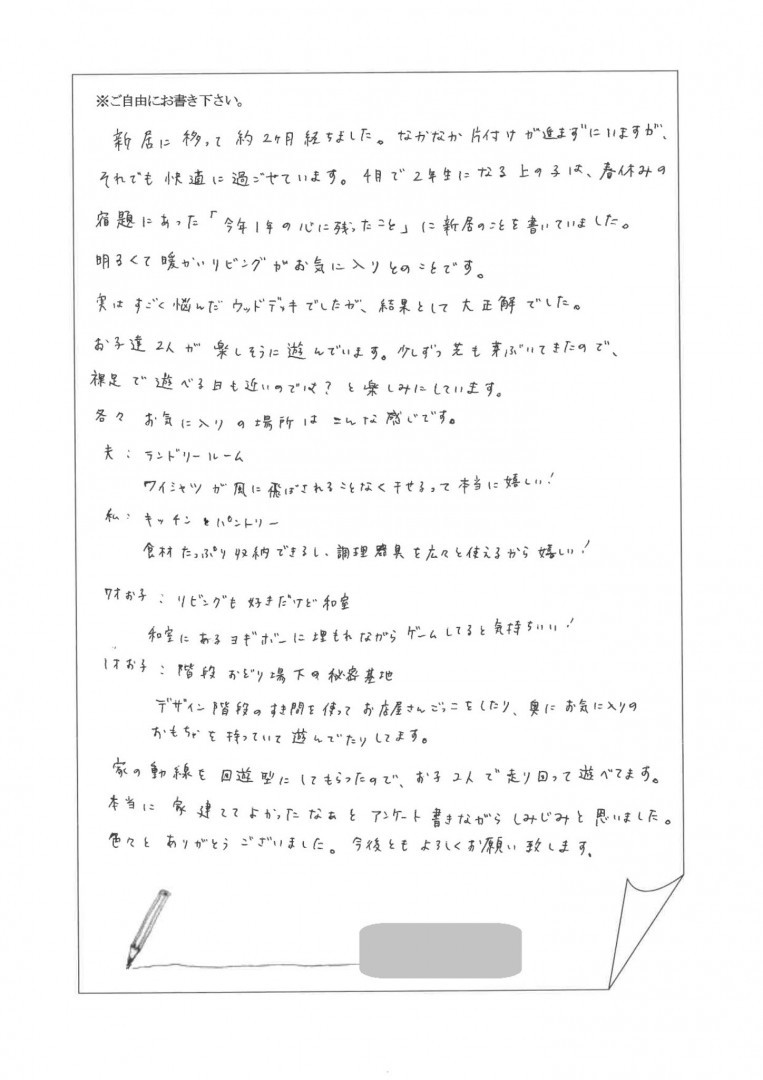 ※ご自由にお書き下さい。
新居に移って約2ヶ月経ちました。なかなか片付けが進まずにいますが、
それでも快適に過ごせています。4月で2年生になる上の子は、春休みの
宿題にあった「今年1年の心に残ったこと」に新居のことを書いていました。
明るくて暖かいリビングがお気に入りとのことです。
実はすごく悩んだウッドデッキでしたが、結果として大正解でした。
お子達2人が楽しそうに遊んでいます。少しずつ芝も芽ぶいてきたので、
裸足で遊べる日も近いのでは？と楽しみにしています。
各々お気に入りの場所はこんな感じです。
夫：ランドリールーム
ワイシャツが風に飛ばされることなく干せるって本当に嬉しい！
私：キッチンとパントリー
食材たっぷり収納できるし、調理器具を広々と使えるから嬉しい！
7才お子：リビングも好きだけど和室
和室にあるヨギボーに埋もれながらゲームしてると気持ちいい！
1才お子：階段おどり場下の秘密基地
デザイン階段のすき間を使ってお店屋さんごっこをしたり、奥にお気に入りの
おもちゃを持っていて遊んでたりしてます。
家の動線を回遊型にしてもらったので、お子2人で走り回って遊べてます。
本当に家建ててよかったなぁとアンケート書きながらしみじみと思いました。
色々とありがとうございました。今後ともよろしくお願い致します。